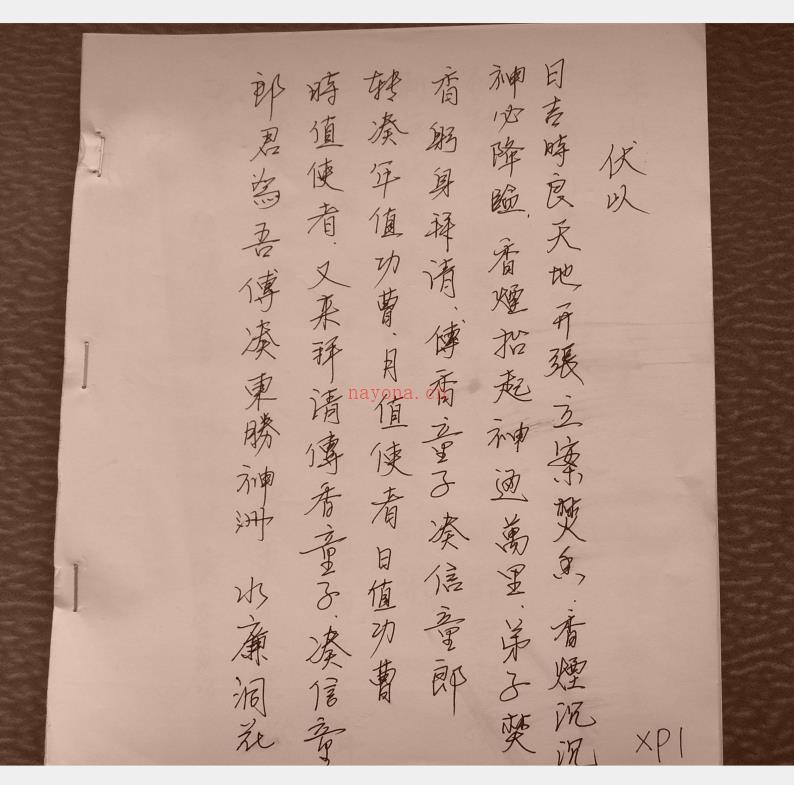 伏以
日吉時良天地开張立案焚香.香煙沉沉
神必降臨.香煙招起神通萬里.弟子焚
香躬身拜请.傅香童子凑信童郎
转凑年值功曹.月值使者日值功曹
時值使者.又来拜请傅香童子.凑信童
郎君為吾傅凑東勝神洲 水廉洞花
XP1
nayona.cn